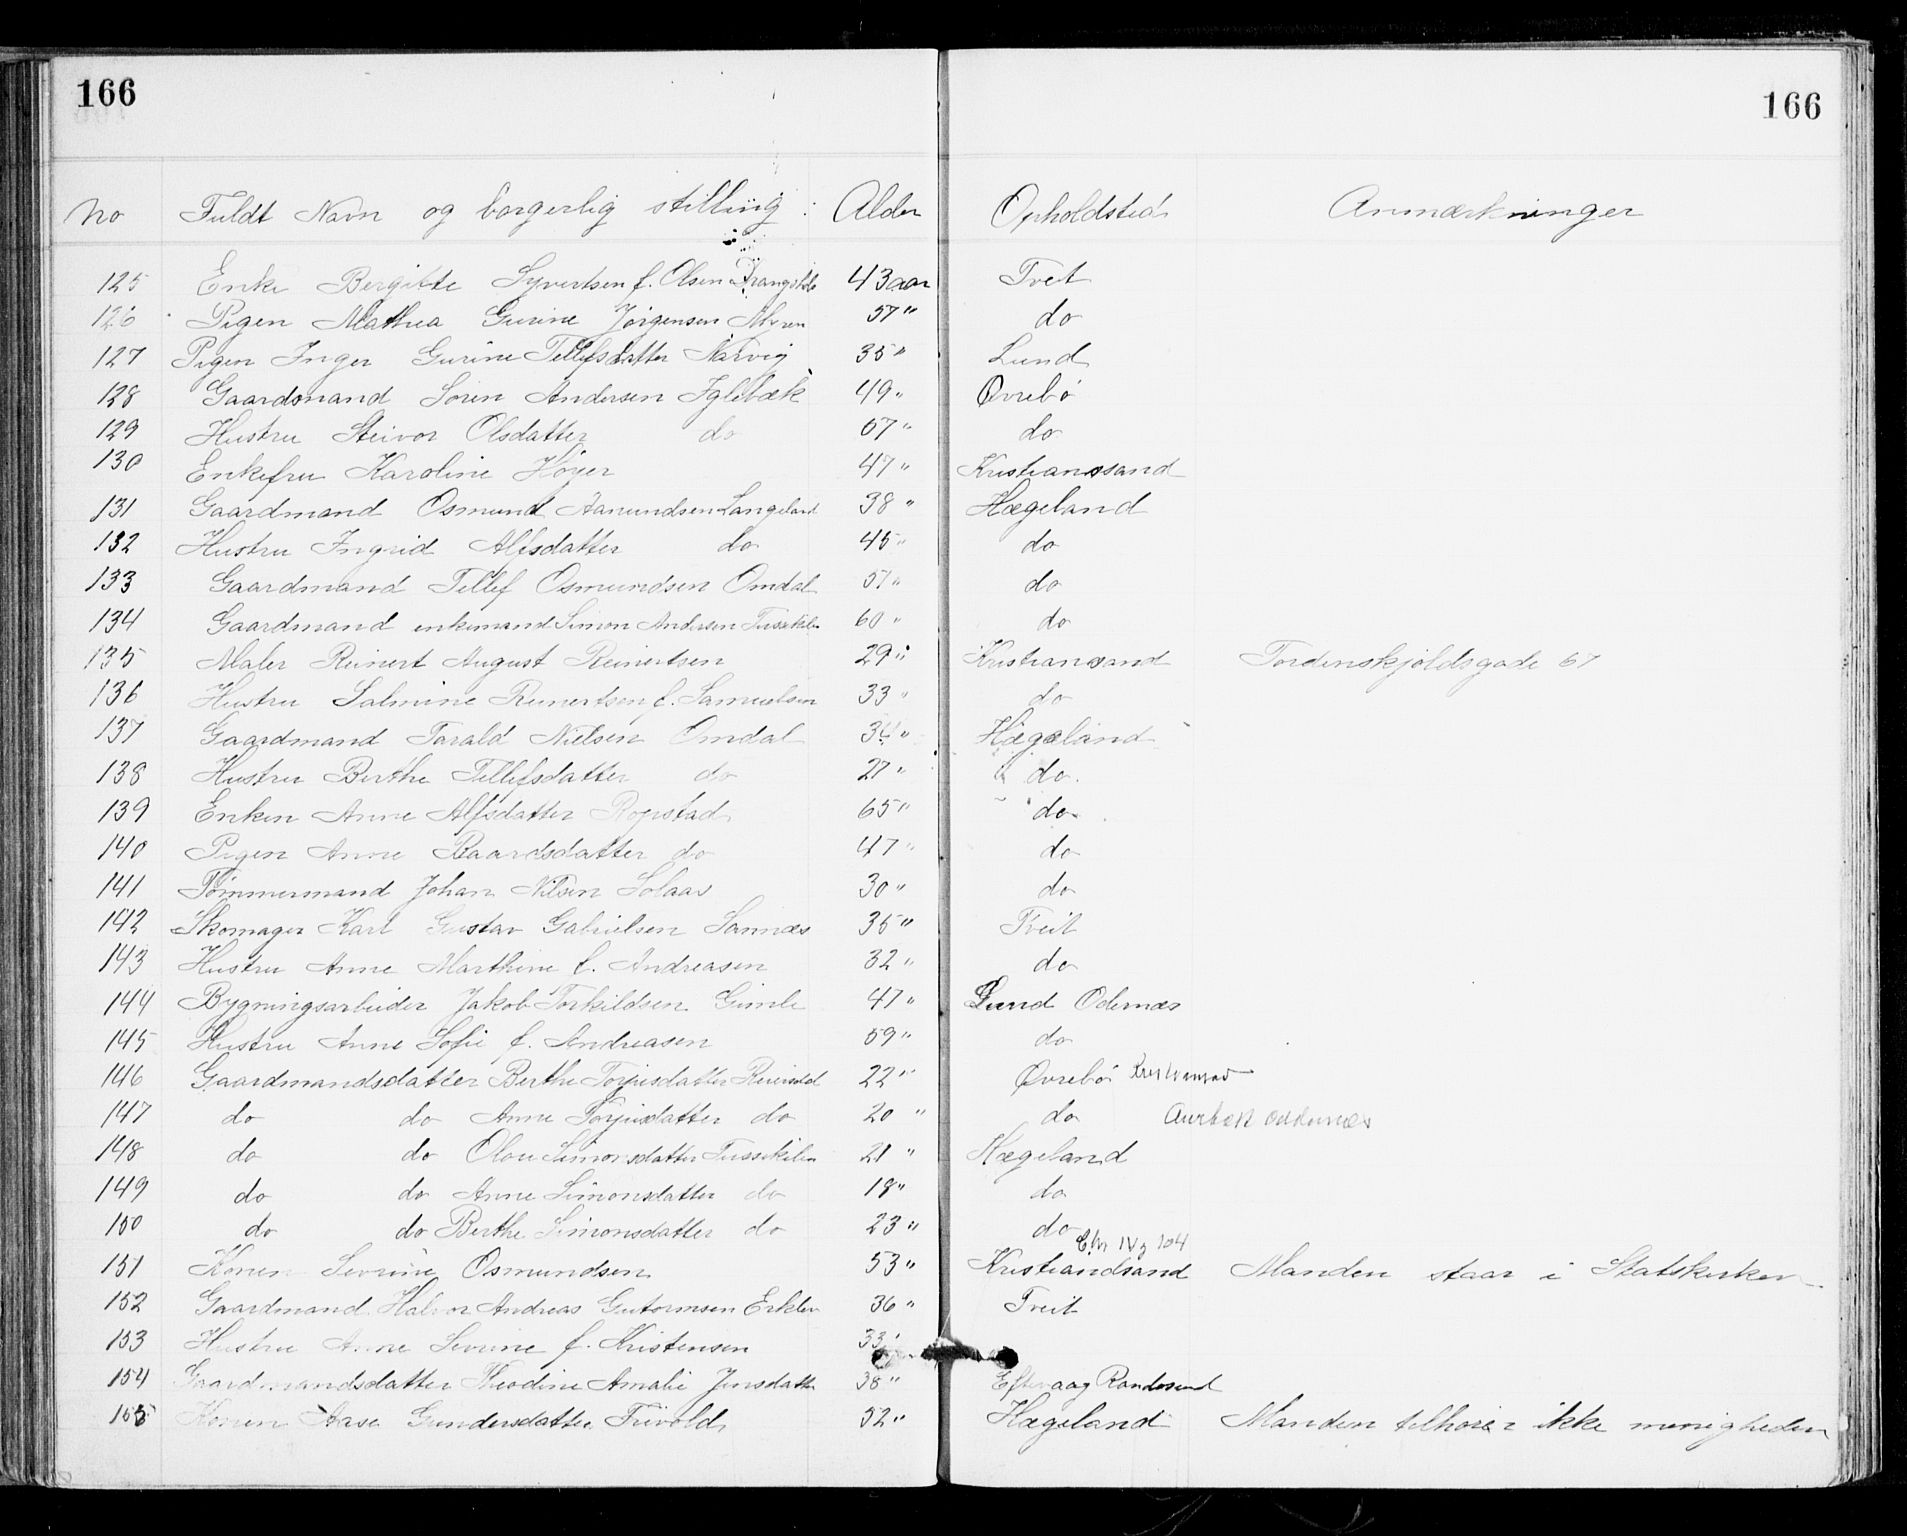 166 166
No Fuldt Navn og borgerlig stilling: Alder Opholdsted Anmærkninger
125 Enke Bergitte Syvertsen f. Olsen 43 aar Tvet
126 Pigen Mathea Gurine Jørgensen Myren 57 " do
127 Pigen Inger Gurine Tellefsdatter Narvig 35 " Lund
128 Gaardmand Søren Andersen Iglebæk 49 " Øvrebø
129 Hustru Steivor Olsdatter do 67 " do
130 Enkefru Karoline Höyer 47 " Kristianssand
131 Gaardmand Osmund Aanundsen Langeland 38 " Hægeland
132 Hustru Ingrid Alfsdatter do 45 " do
133 Gaardmand Tellef Osmundsen Omdal 57 " do
134 Gaardmand enkemand Simon Andersen 60 " do
135 Maler Reinert August Reinertsen 29 " Kristiansand Tordenskjoldsgade 67
136 Hustru Salmine Reinertsen f. Samuelsen 33 " do
137 Gaardmand Tarald Nielsen Omdal 34 " Hægeland
138 Hustru Berthe Tellefsdatter do 27 " do
139 Enken Anne Alfsdatter Ropstad 65 " do
140 Pigen Anne Baardsdatter do 47 " do
141 Tømmermand Johan Nilsen Solaas 30 " do
142 Skomager Karl Gustav Gabrielsen Sannæs 35 " Tveit
143 Hustru Anne Marthine f. Andreasen 32 " do
144 Bygningsarbeider Jakob Torkildsen Gimle 47 " Lund Odernæs
145 Hustru Anne Sofie f. Andreasen 59 " do
146 Gaardmandsdatter Berthe Torjusdatter 22 " Øvrebø
147 do do Anne Torjusdatter do 20 " do oddernæs
148 do do Olou Simonsdatter 21 " Hægeland
149 do do Anne Simonsdatter do 18 " do
150 do do Berthe Simonsdatter do 23 " do
104
151 Konen Severine Osmundsen 53 " Kristiandsand Manden staar i Statskirken
152 Gaardmand Halvor Andreas Gutormsen Erklev 36 " Tveit
153 Hustru Anne Severine f. Kristensen 33
154 Gaardmandsdatter Theodine Amalie Jensdatter 38 " Eftevaag Randøsund
155 Konen Aase Gundersdatter Frivold 52 " Hægeland Manden tilhører ikke menigheden